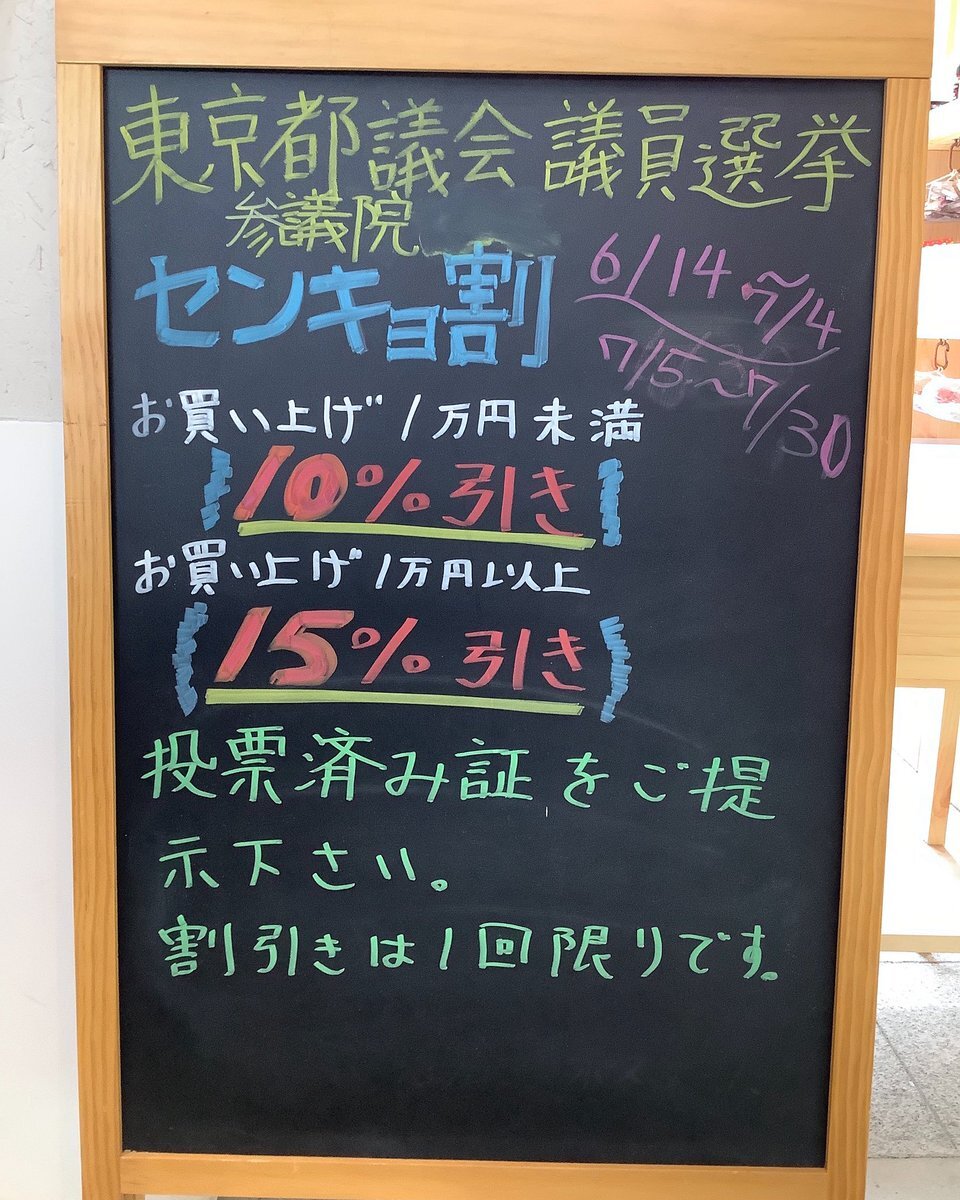 東京都議会議員選挙
参議院
センキョ割
6/14〜7/4
7/5〜7/30
お買い上げ1万円未満
10%引き
お買い上げ1万円以上
15%引き
投票済み証をご提
示下さい。
割引きは1回限りです。